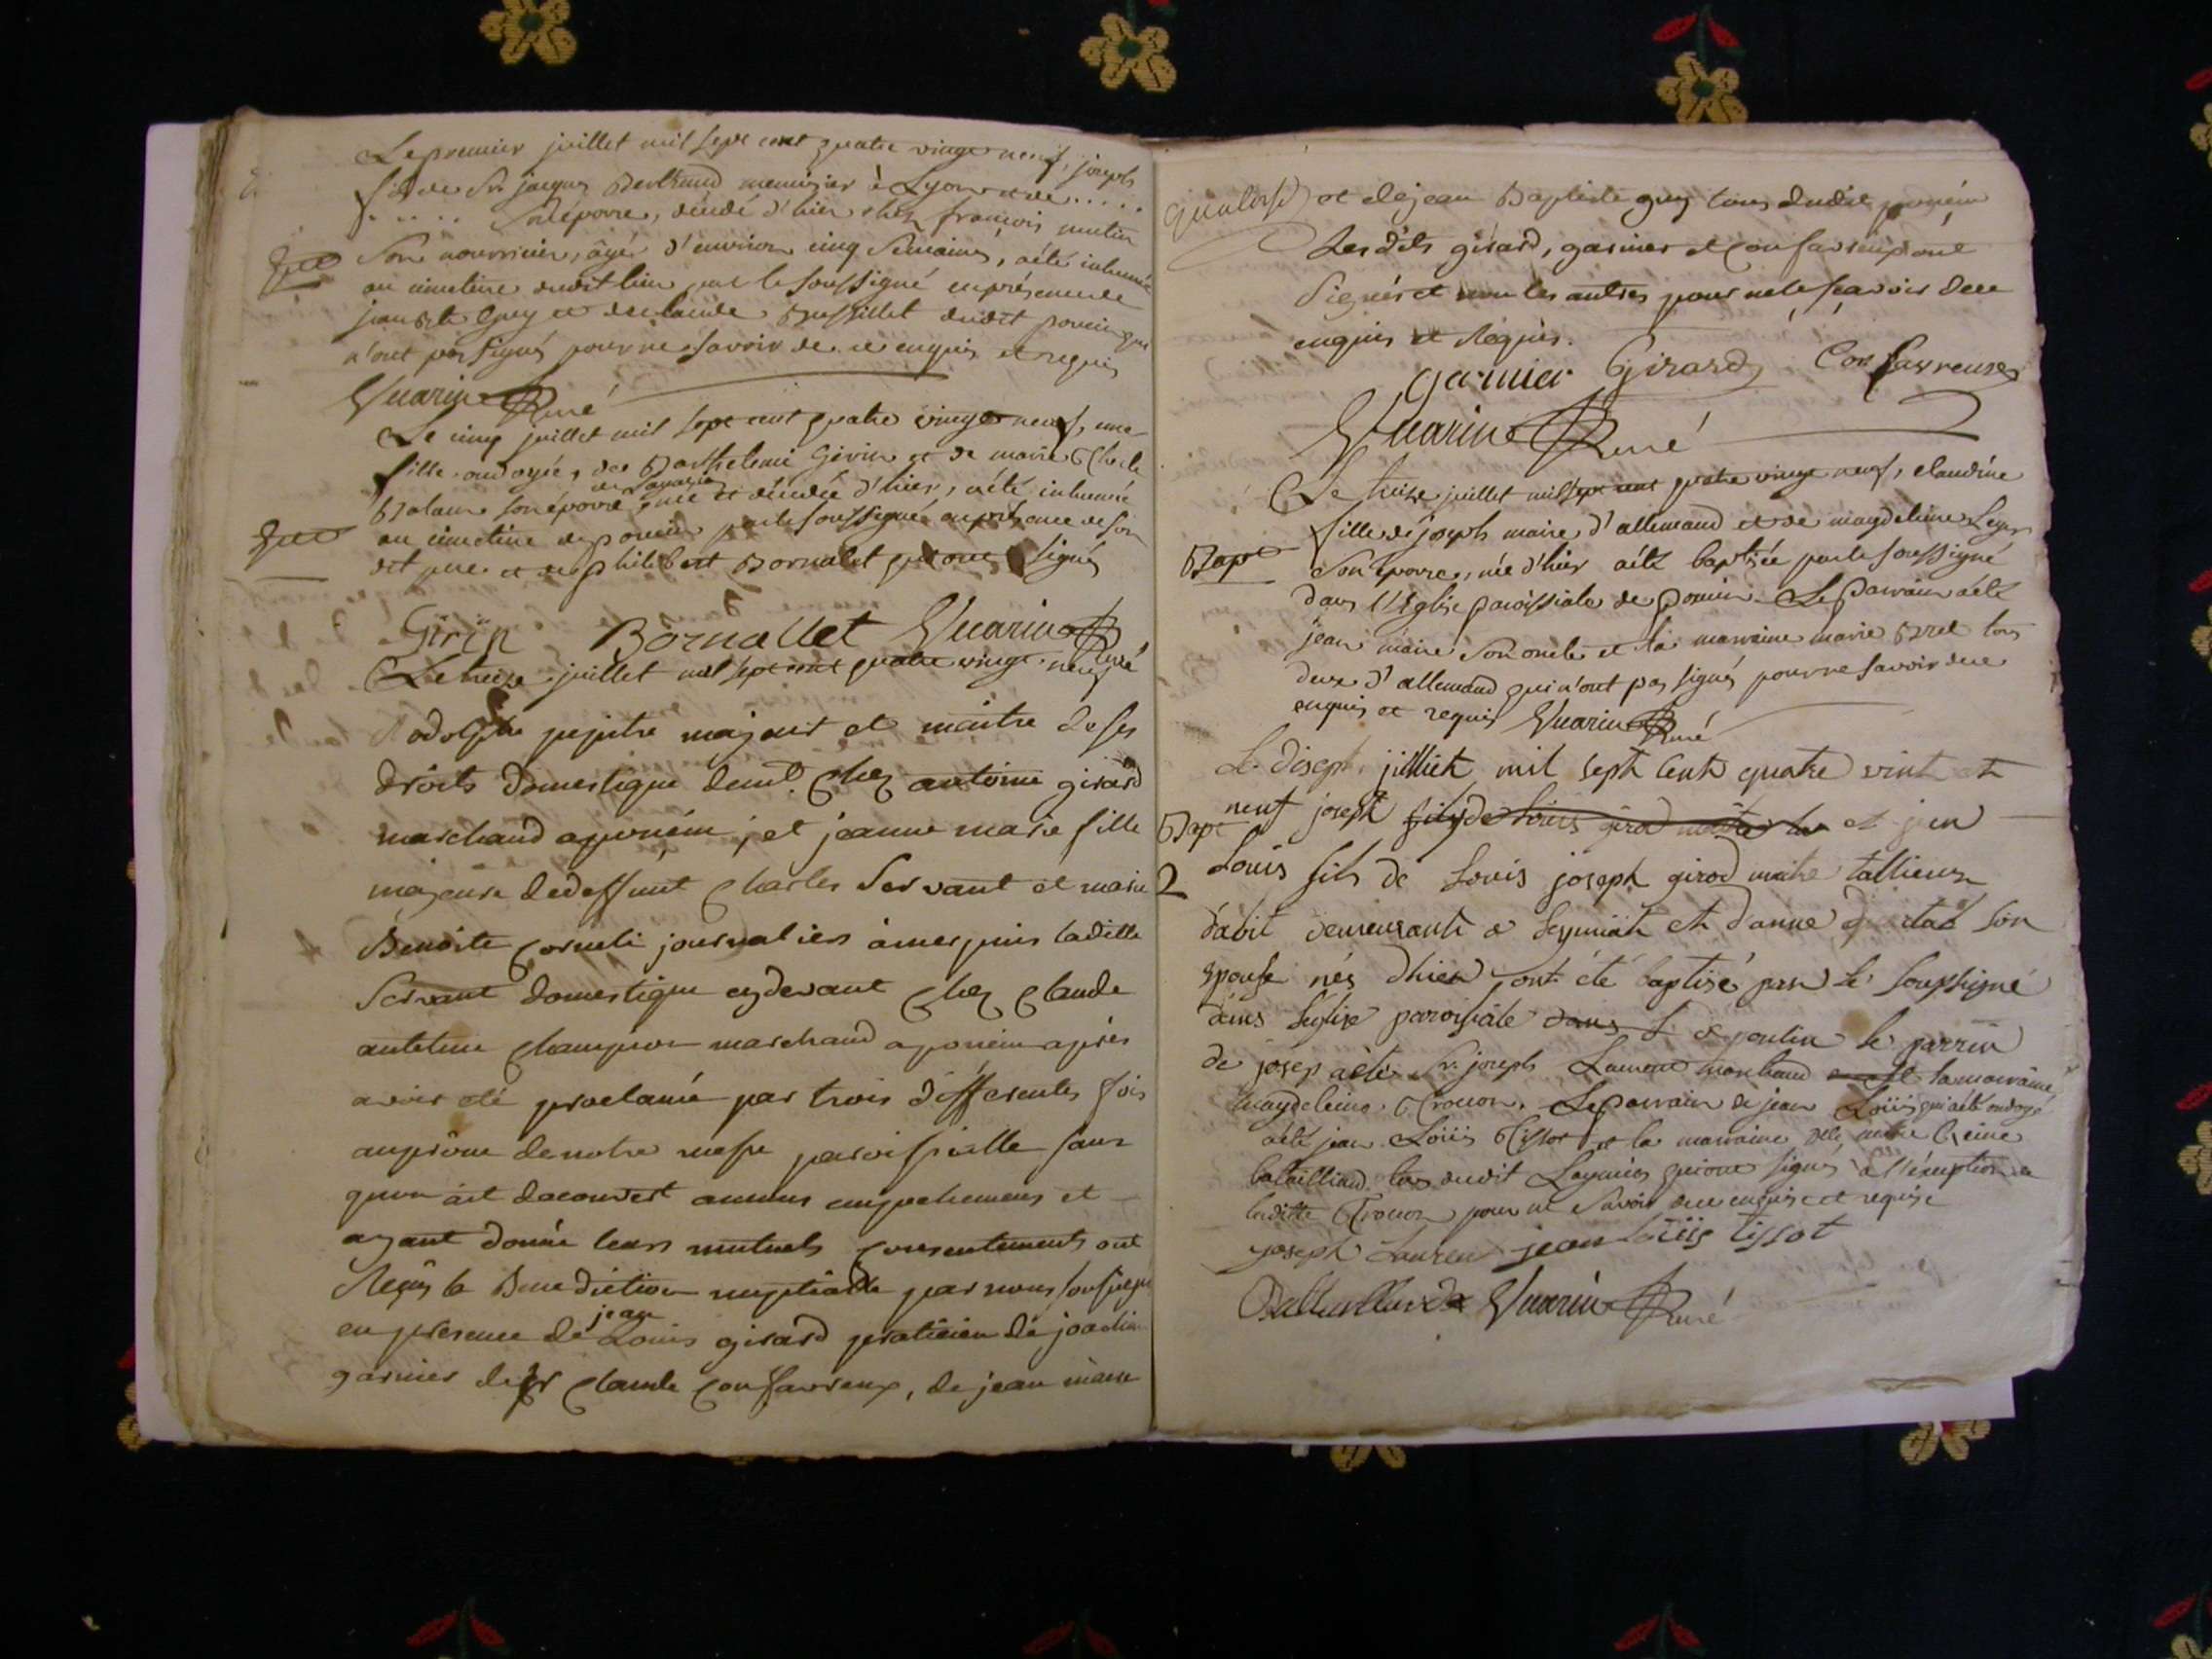 Le premier juillet mil sept cent quatre vingt neuf, joseph
fils de Sr. jacques Berthaud menuisier à Lyon et de .....
..... son épouse, décédé d'hier chez françois mutin
Sep
son nourricier, âgé d'environ cinq semaines, a été inhumé
au cimetière dudit lieu par le soussigné en présence de
jean Bte Guy et de claude Bussillet dudit poncin qui
n'ont pas signés pour ne savoir de ce enquis et requis
Guarin Curé
Le cinq juillet mil sept cent quatre vingt neuf, une
fille ondoyée, de Barthelemi Girin et de marie
son épouse née et décédée d'hier, a été inhumée
Sep
au cimetière de poncin par le soussigné en présence de son
dit pere et de philibert Bornalet qui ont signés
Girin Bornallet Guarin Curé
Le treize juillet mil sept cent quatre vingt neuf
Rodolphe pepitre majeur et maitre de ses
droits domestique demt. chez antoine girard
marchand a poncin, et jeanne marie fille
majeure de deffunt Charles Servant et marie
Benoite Corneli journaliers a merpuis ladite
Servant domestique cydevant chez Claude
antelme Champion marchand a poncin apres
avoir eté proclamé par trois differentes fois
au prône de notre messe paroissialle sans
quon ait decouvert aucuns empechemens et
ayant donné leurs mutuels consentements ont
Reçus la Benediction nuptialle par nous soussigné
en presence de jean Louis girard praticien de joachim
garnier de sr Claude Confavreux, de jean marie
et de jean Baptiste guy tous dudit poncin
Lesdits girard, garnier et Confavreux ont
signés et non les autres pour ne le scavoir de ce
enquis et Requis.
garnier Girard Confavreux
Guarin Curé
Le treize juillet mil sept cent quatre vingt neuf, claudine
fille de joseph maire d'allemand et de magdeleine Leger
Bapt
son épouse, née d'hier a été baptisée par le soussigné
dans l'Eglise paroissiale de poncin. Le parrain a été
jean maire son oncle et la marraine marie Brel tous
deux d'allemand qui n'ont pas signés pour ne savoir de ce
enquis et requis Guarin Curé
Le disept jilliet mil sept cent quatre vint et
Bapt
neuf joseph fils de Louis girod maitre et jean
2
Louis fils de Louis joseph girod maitre tallieur
dabit demeurant a Leymiat et d'anne son
epouse nés dhier ont été baptisé par le soussigné
dans léglise paroissiale dans de poncin le parrin
de josep a été Sr. joseph Laurent marchand et la marraine
magdeleine Trouon. Le parrain de jean Loüis qui a été ondoyé
a été jean Loüis Tissot et la marraine Dlle marie Reine
batailliard tous dudit Leymiat qui ont signés à l'éxception de
ladite Trouon pour ne savoir de ce enquise et requise
joseph Lauren jean loüis tissot
Guarin Curé